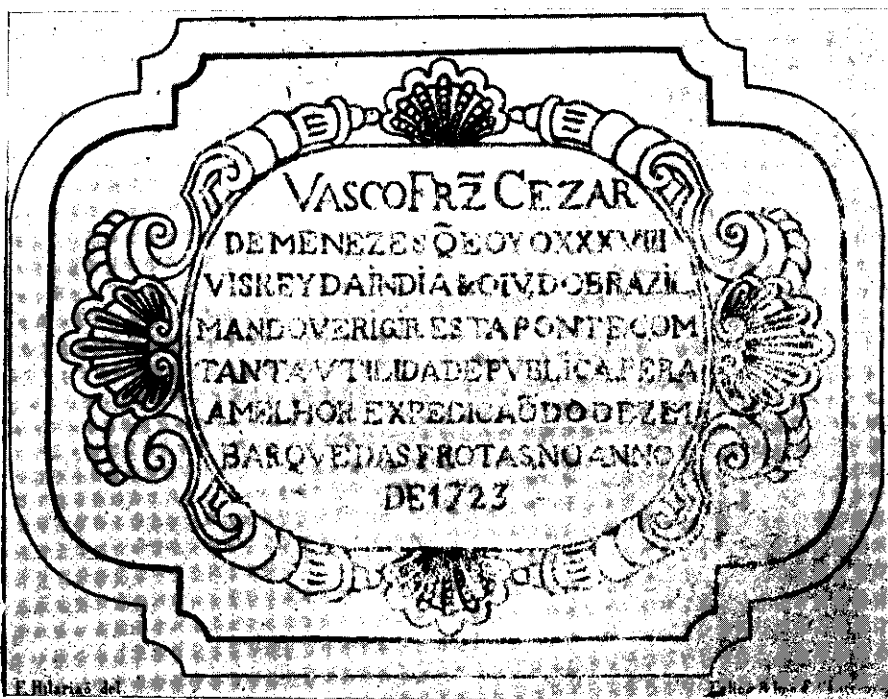 VASCO FRZ̃ CEZAR
DE MENEZES Q̃ E O VO XXXVIII
VISREY DA INDIA & O IV. DO BRAZIL
MANDOV ERIGIR ESTA PONTE COM
TANTA VTILIDADE PVBLICA PERA
A MELHOR EXPEDICAÕ DO DEZEM
BARQVE DAS FROTAS, NO ANNO
DE 1723
E. Hilariaõ del.